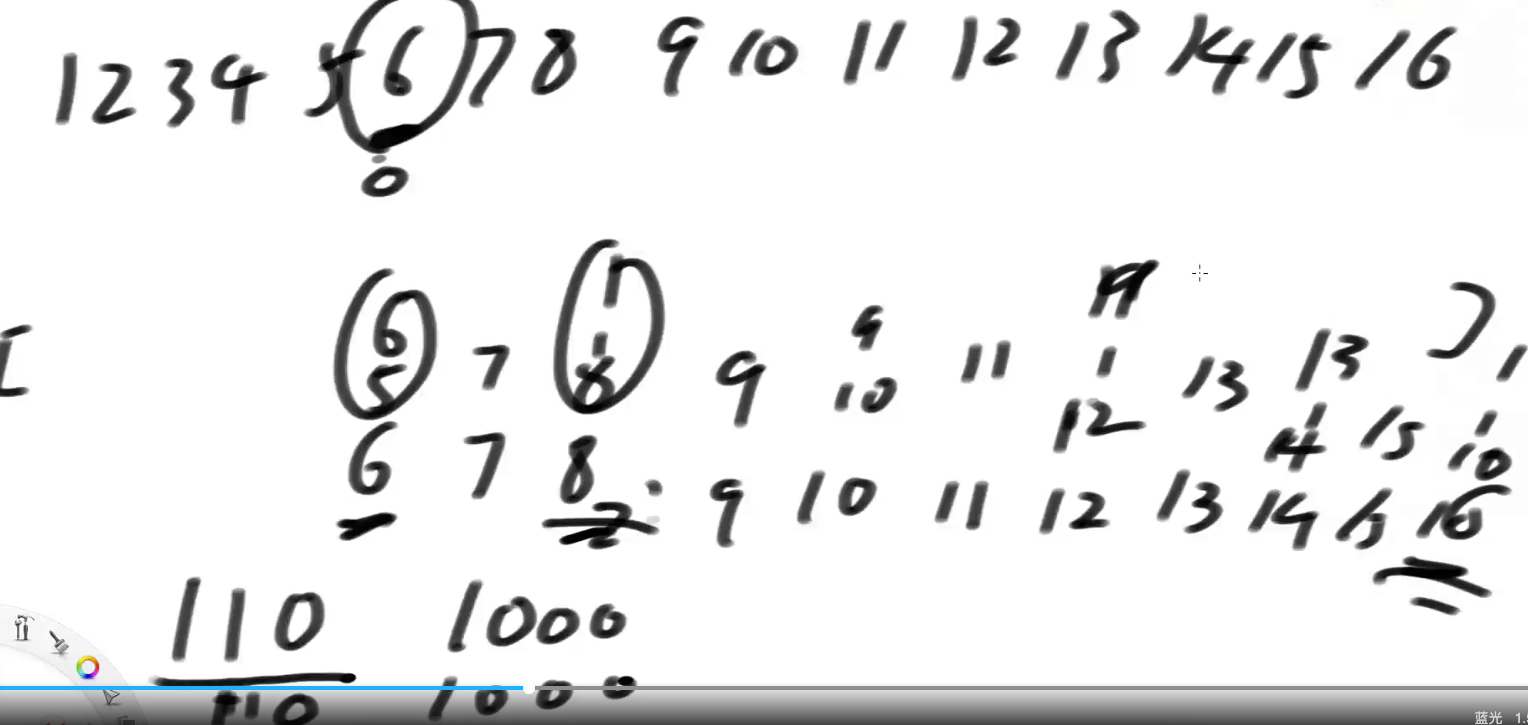 1 2 3 4 5 6 7 8 9 10 11 12 13 14 15 16
0
1
9
6 7 1 9 11 1 13 13 1
5 8 10 12 14 15 10
6 7 8 9 10 11 12 13 14 15 16
110 1000
110 1000
蓝光